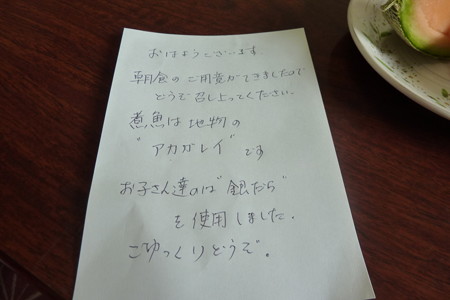 おはようございます
朝食のご用意ができましたので
どうぞ召し上ってください。
煮魚は地物の
"アカガレイ"です
お子さん達のは"銀だら"
を使用しました。
ごゆっくりどうぞ。